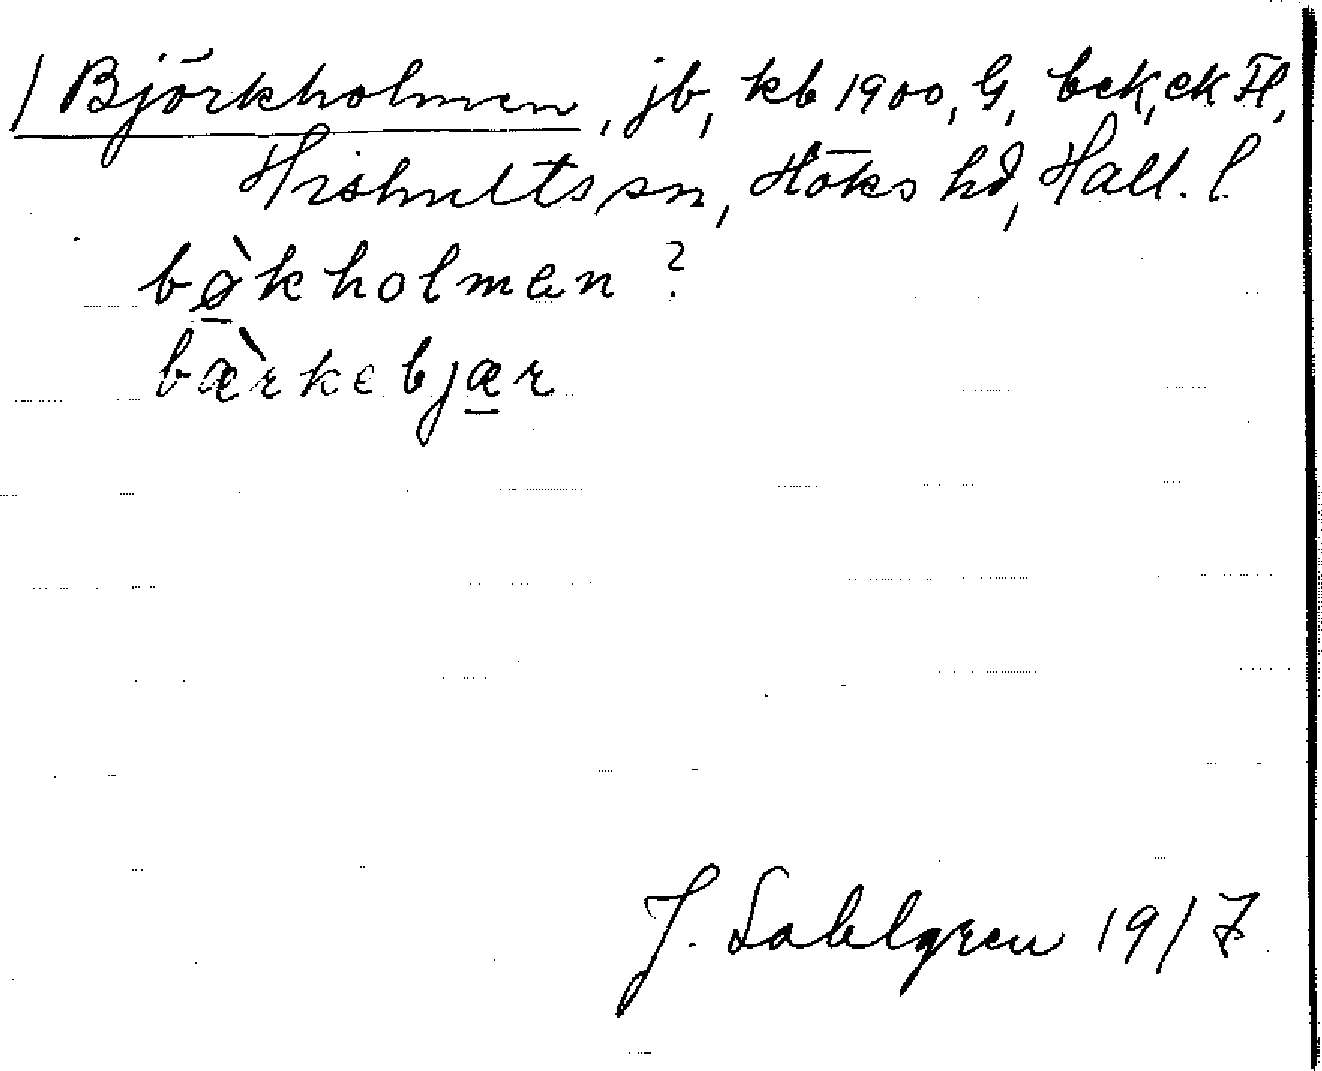 / Björkholmen, jb, kb 1900, G, bek, ek Fl,
Hishults sn, Höks hd, Hall. l.
bø̱̀kholmen ?
bæ̀rkebjæ̱r
J. Sahlgren 1917